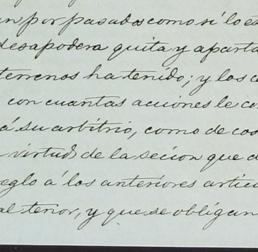 an por pasados como si lo es
desapodera quita y aparta
terrenos ha tenido; y los c
con cuantas acciones le co
á su arbitrio, como de cos
virtud de la secion que a
eglo á los anteriores articu
al tenor, y que se obligan